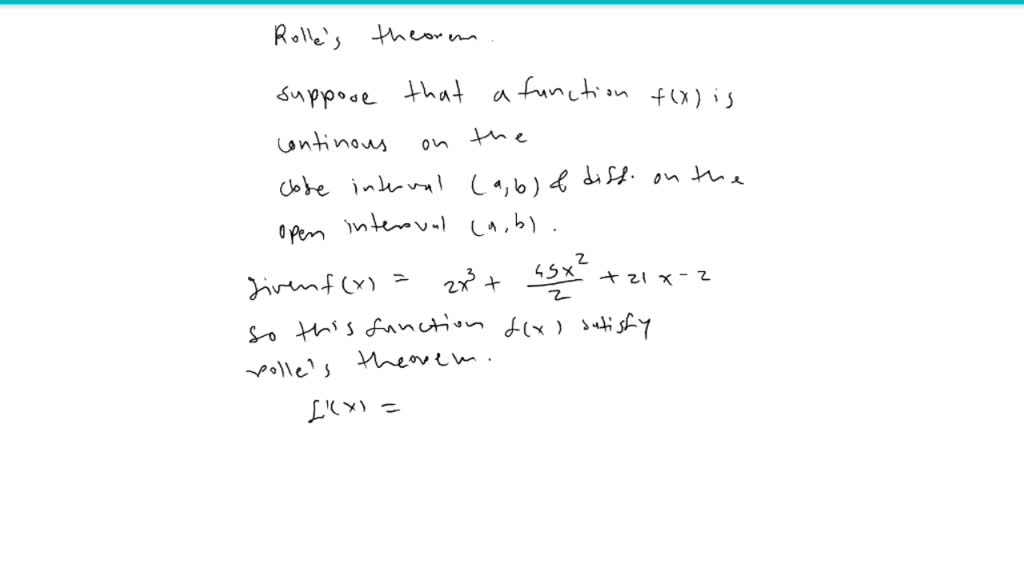 Rolle's theorem.
suppose that a function f(x) is
continous on the
close interval (a,b) & diff. on the
open interval (a,b).
given f(x) = 2x³ + 45x²/2 + 21x - 2
so this function f(x) satisfy
rolle's theorem.
f'(x) =